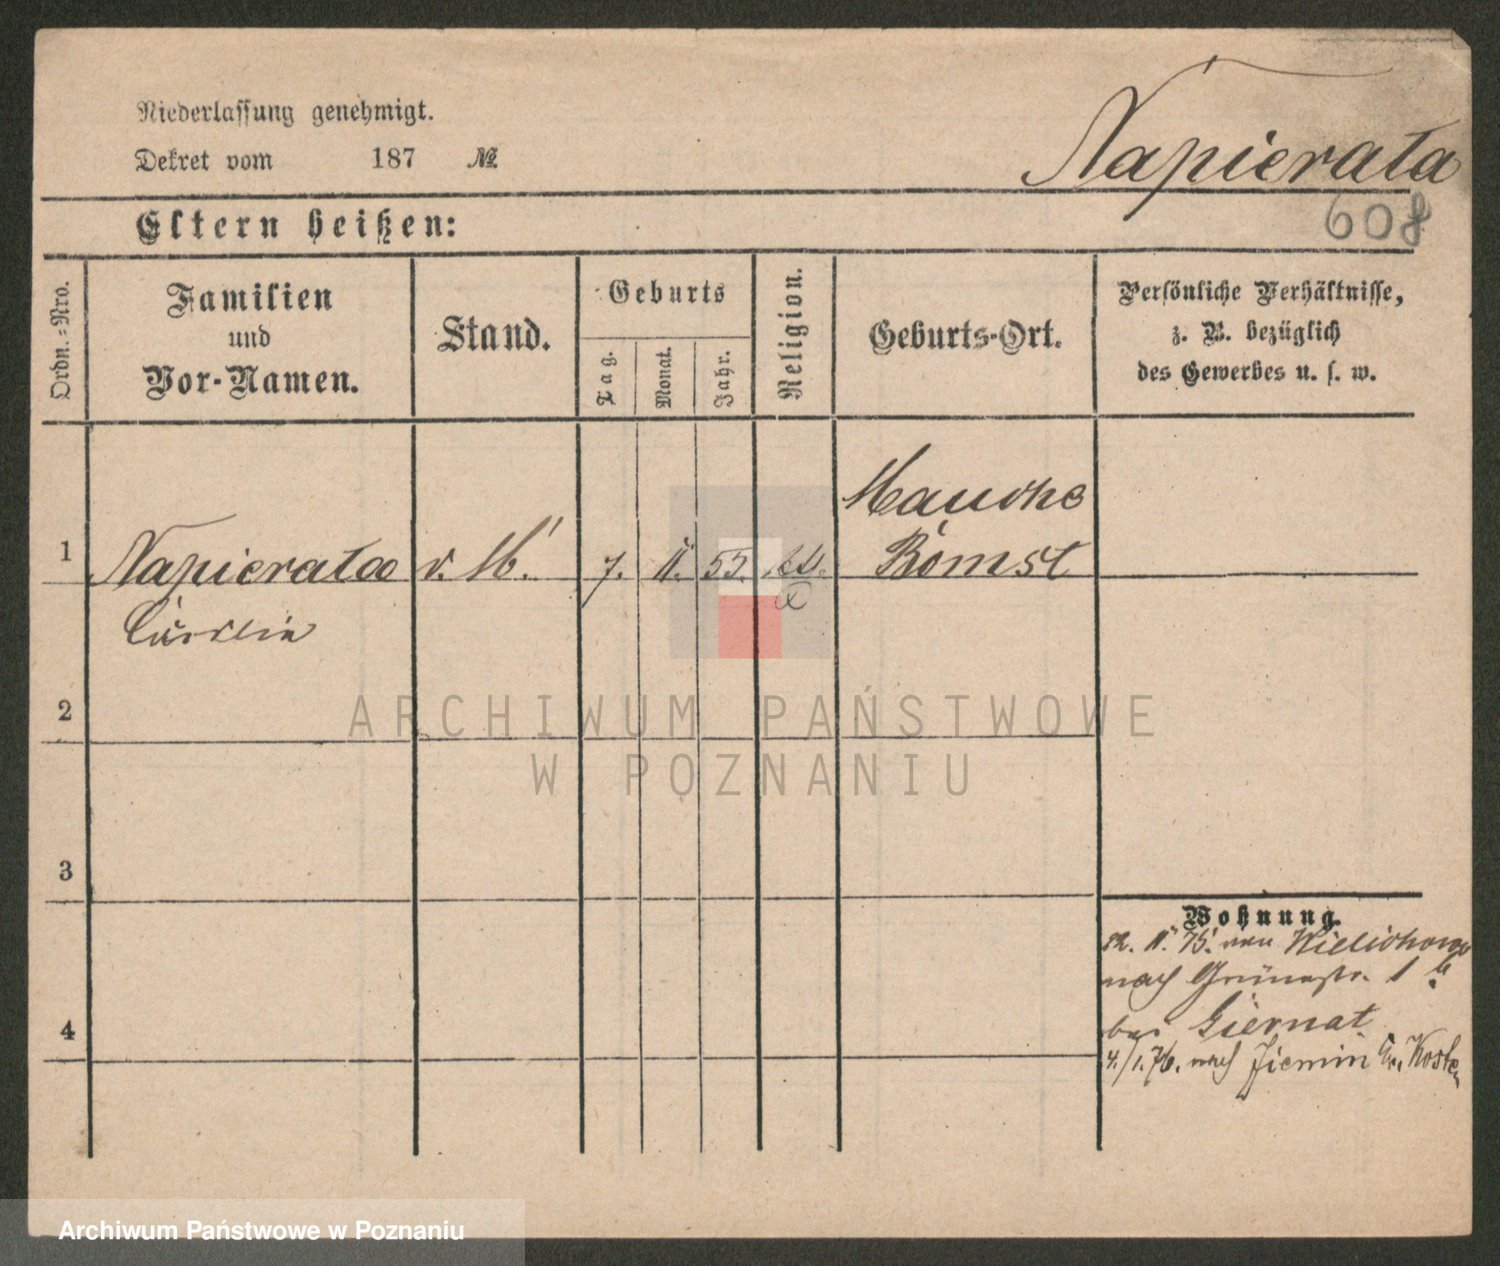 Niederlassung genehmigt.
Dekret vom 187 №
Napierała
608
Eltern heißen:
Ordn.-Nro.
Familien
und
Vor-Namen.
Stand.
Geburts
Tag.
Monat.
Jahr.
Religion.
Geburts-Ort.
Persönliche Verhältnisse,
z. B. bezüglich
des Gewerbes u. s. w.
Mauche
1 Napierała d. M. 7. 11. 55. Bomst
2
3
4
Wohnung.
22. 11. 75. von Wielichowo
nach Grünestr. 1
bei Giernat
4./1.76. nach Ziemin Kr. Kosten
ARCHIWUM PAŃSTWOWE
W POZNANIU
Archiwum Państwowe w Poznaniu